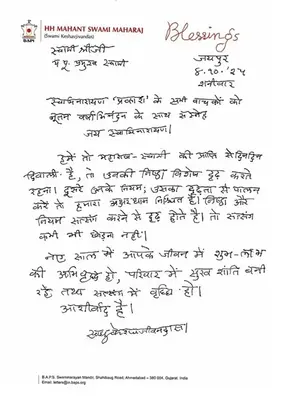 HH MAHANT SWAMI MAHARAJ
(Swami Keshavjivandas)
BAPS
Blessings
स्वामीश्रीजी
जयपुर
शनिवार
स्वामिनारायण प्रकाश के सभी वाचकों को
नूतन वर्षाभिनंदन के साथ सस्नेह
जय स्वामिनारायण।
हमें तो महाराज-स्वामी की प्राप्ति से दिन दिन
दिवाली है, तो उनकी निष्ठा विशेष दृढ़ करते
रहना। दूसरे उनके नियम; उसका दृढ़ता से पालन
करें तो हमारा अक्षरधाम निश्चित है। निष्ठा और
नियम सत्संग करने से दृढ़ होते है। तो सत्संग
कभी भी छोड़ना नहीं।
नए साल में आपके जीवन में शुभ-लाभ
की अभिवृद्धि हो, परिवार में सुख शांति बनी
रहे तथा सत्संग में वृद्धि हो।
आशीर्वाद है।
B.A.P.S. Swaminarayan Mandir, Shahibaug Road, Ahmedabad – 380 004, Gujarat, India
Email: letters@in.baps.org